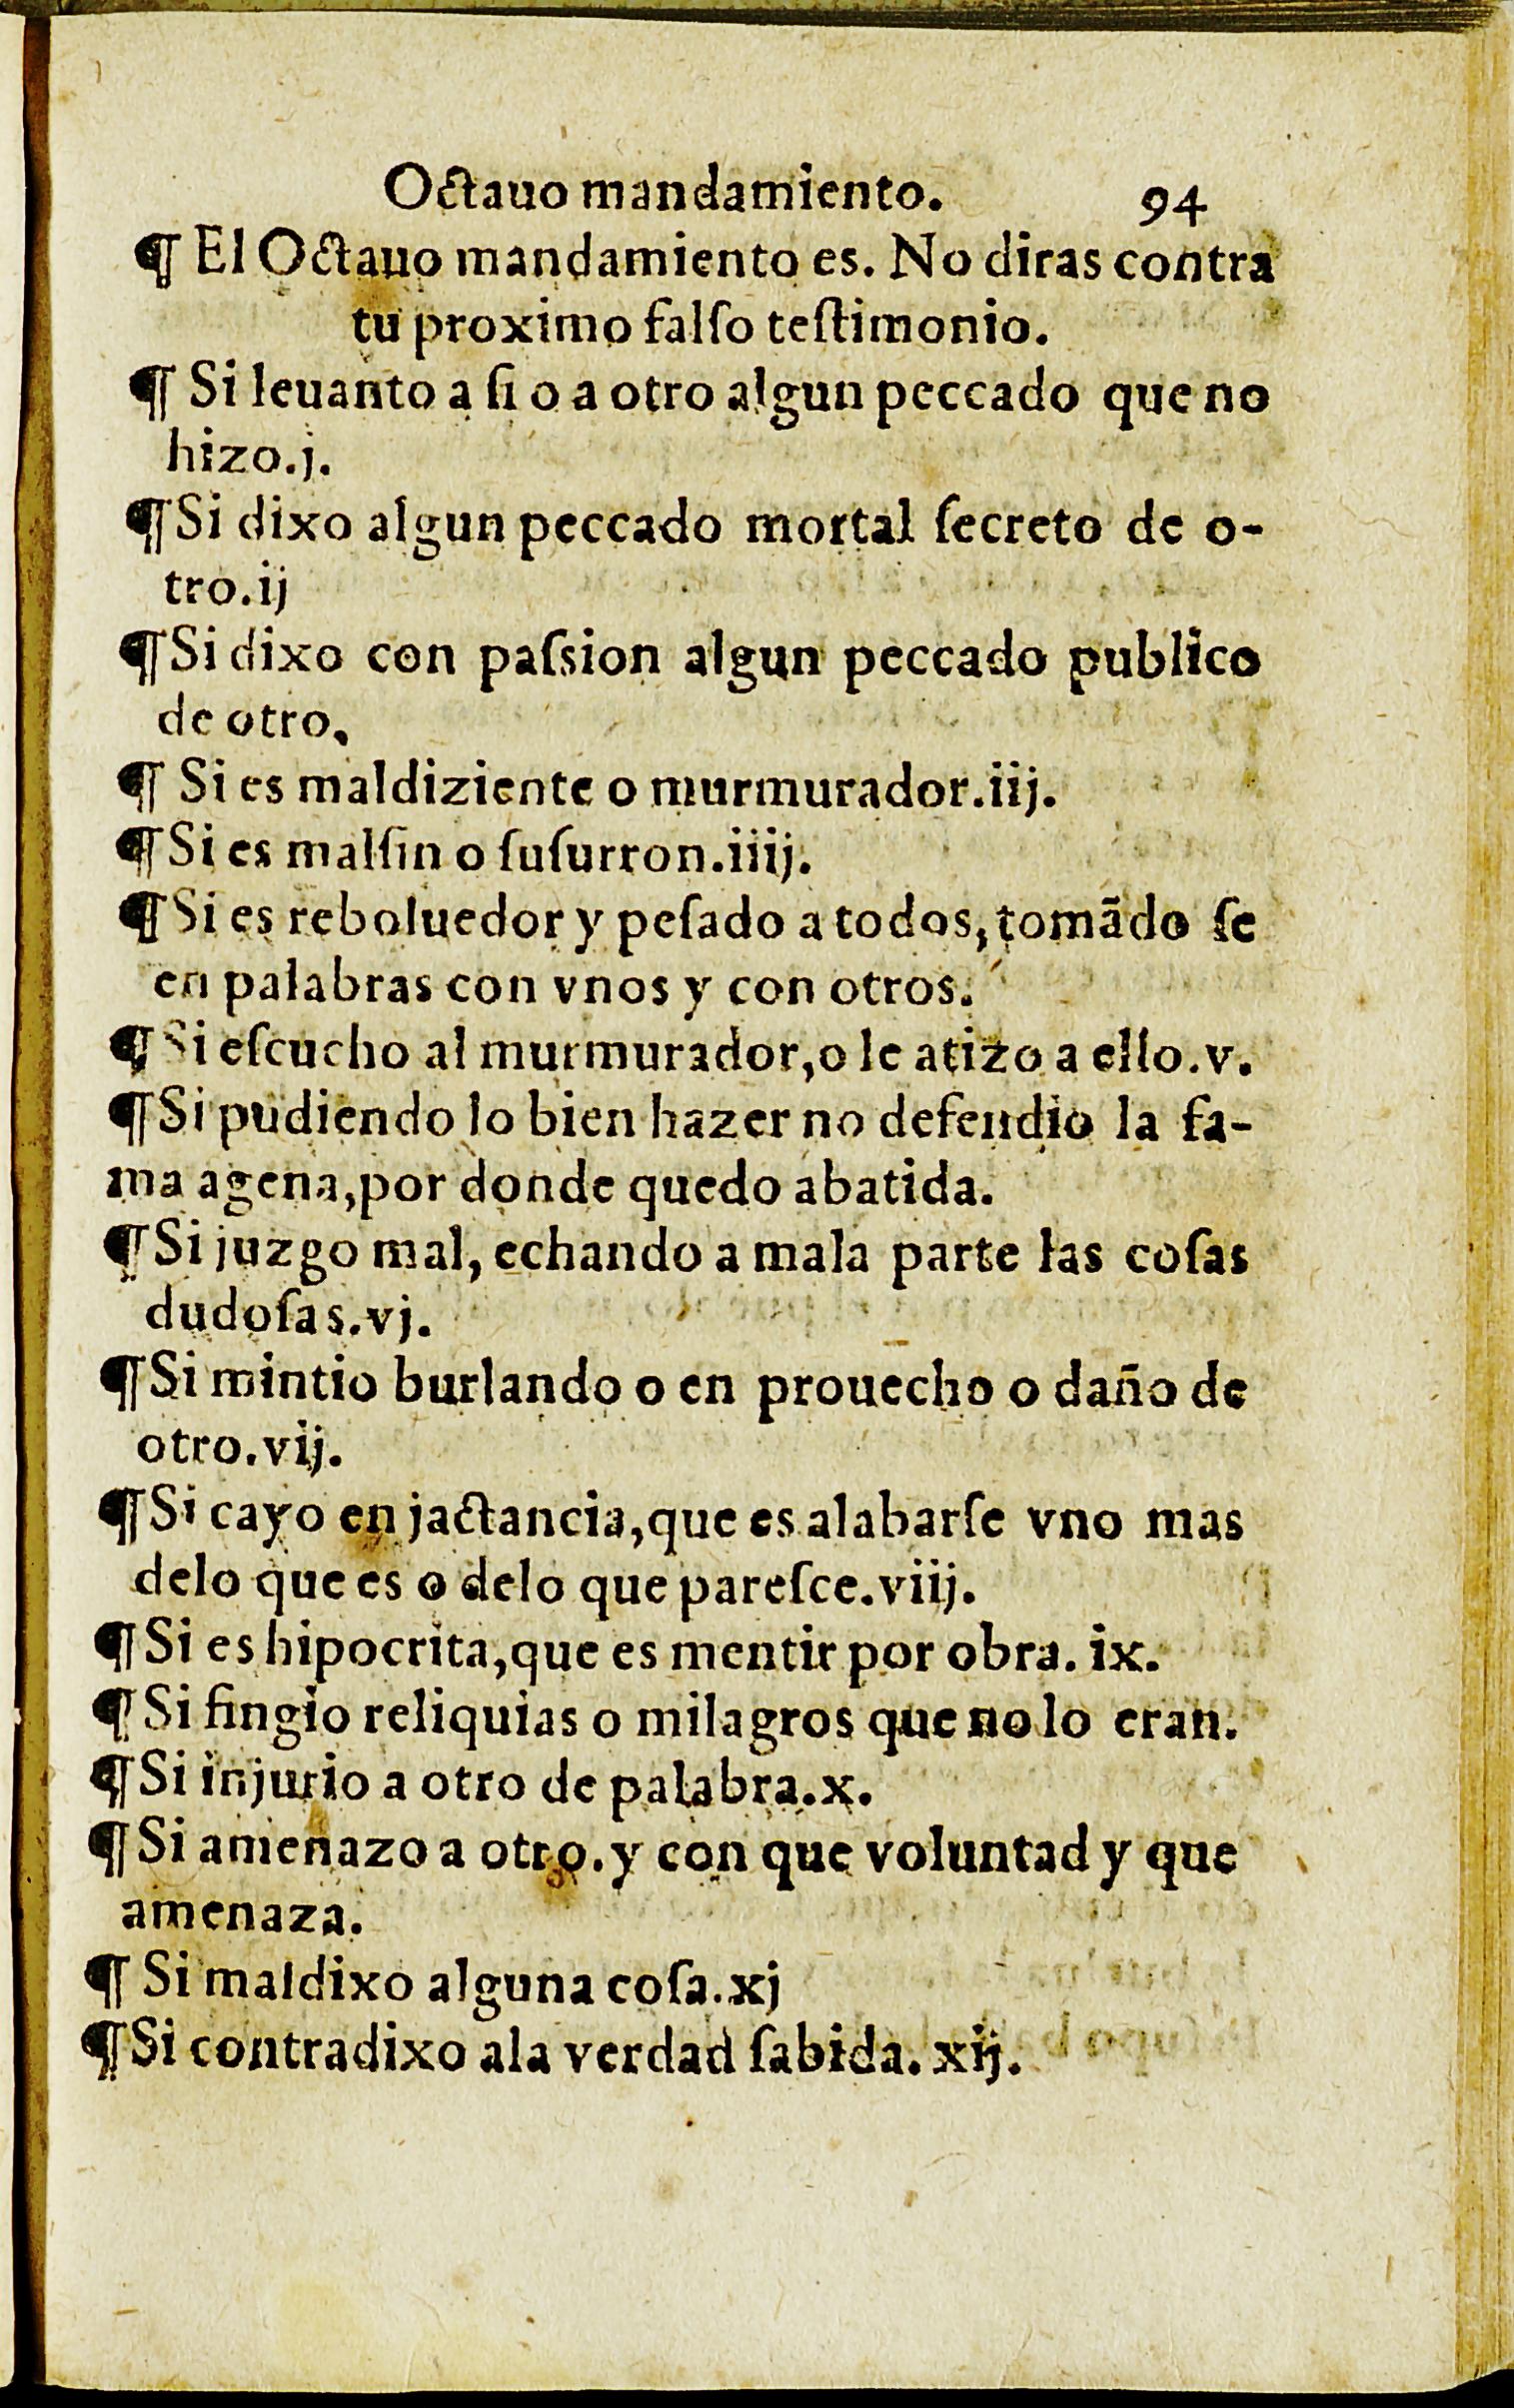 Octauo mandamiento. 94
¶ El Octauo mandamiento es. No diras contra
tu proximo falſo teſtimonio.
¶ Si leuanto a ſi o a otro algun peccado que no
hizo.j.
¶ Si dixo algun peccado mortal ſecreto de o-
tro.ij
¶ Si dixo con paſsion algun peccado publico
de otro,
¶ Si es maldiziente o murmurador.iij.
¶ Si es malſin o ſuſurron.iiij.
¶ Si es reboluedor y peſado a todos, tomãdo ſe
en palabras con vnos y con otros.
¶ Si eſcucho al murmurador, o le atizo a ello.v.
¶ Si pudiendo lo bien hazer no defendio la fa-
ma agena, por donde quedo abatida.
¶ Si juzgo mal, echando a mala parte las coſas
dudoſas.vj.
¶ Si mintio burlando o en prouecho o daño de
otro.vij.
¶ Si cayo en jactancia, que es alabarſe vno mas
delo que es o delo que pareſce.viij.
¶ Si es hipocrita, que es mentir por obra. ix.
¶ Si fingio reliquias o milagros que no lo eran.
¶ Si injurio a otro de palabra.x.
¶ Si amenazo a otro. y con que voluntad y que
amenaza.
¶ Si maldixo alguna coſa.xj
¶ Si contradixo ala verdad ſabida. xij.